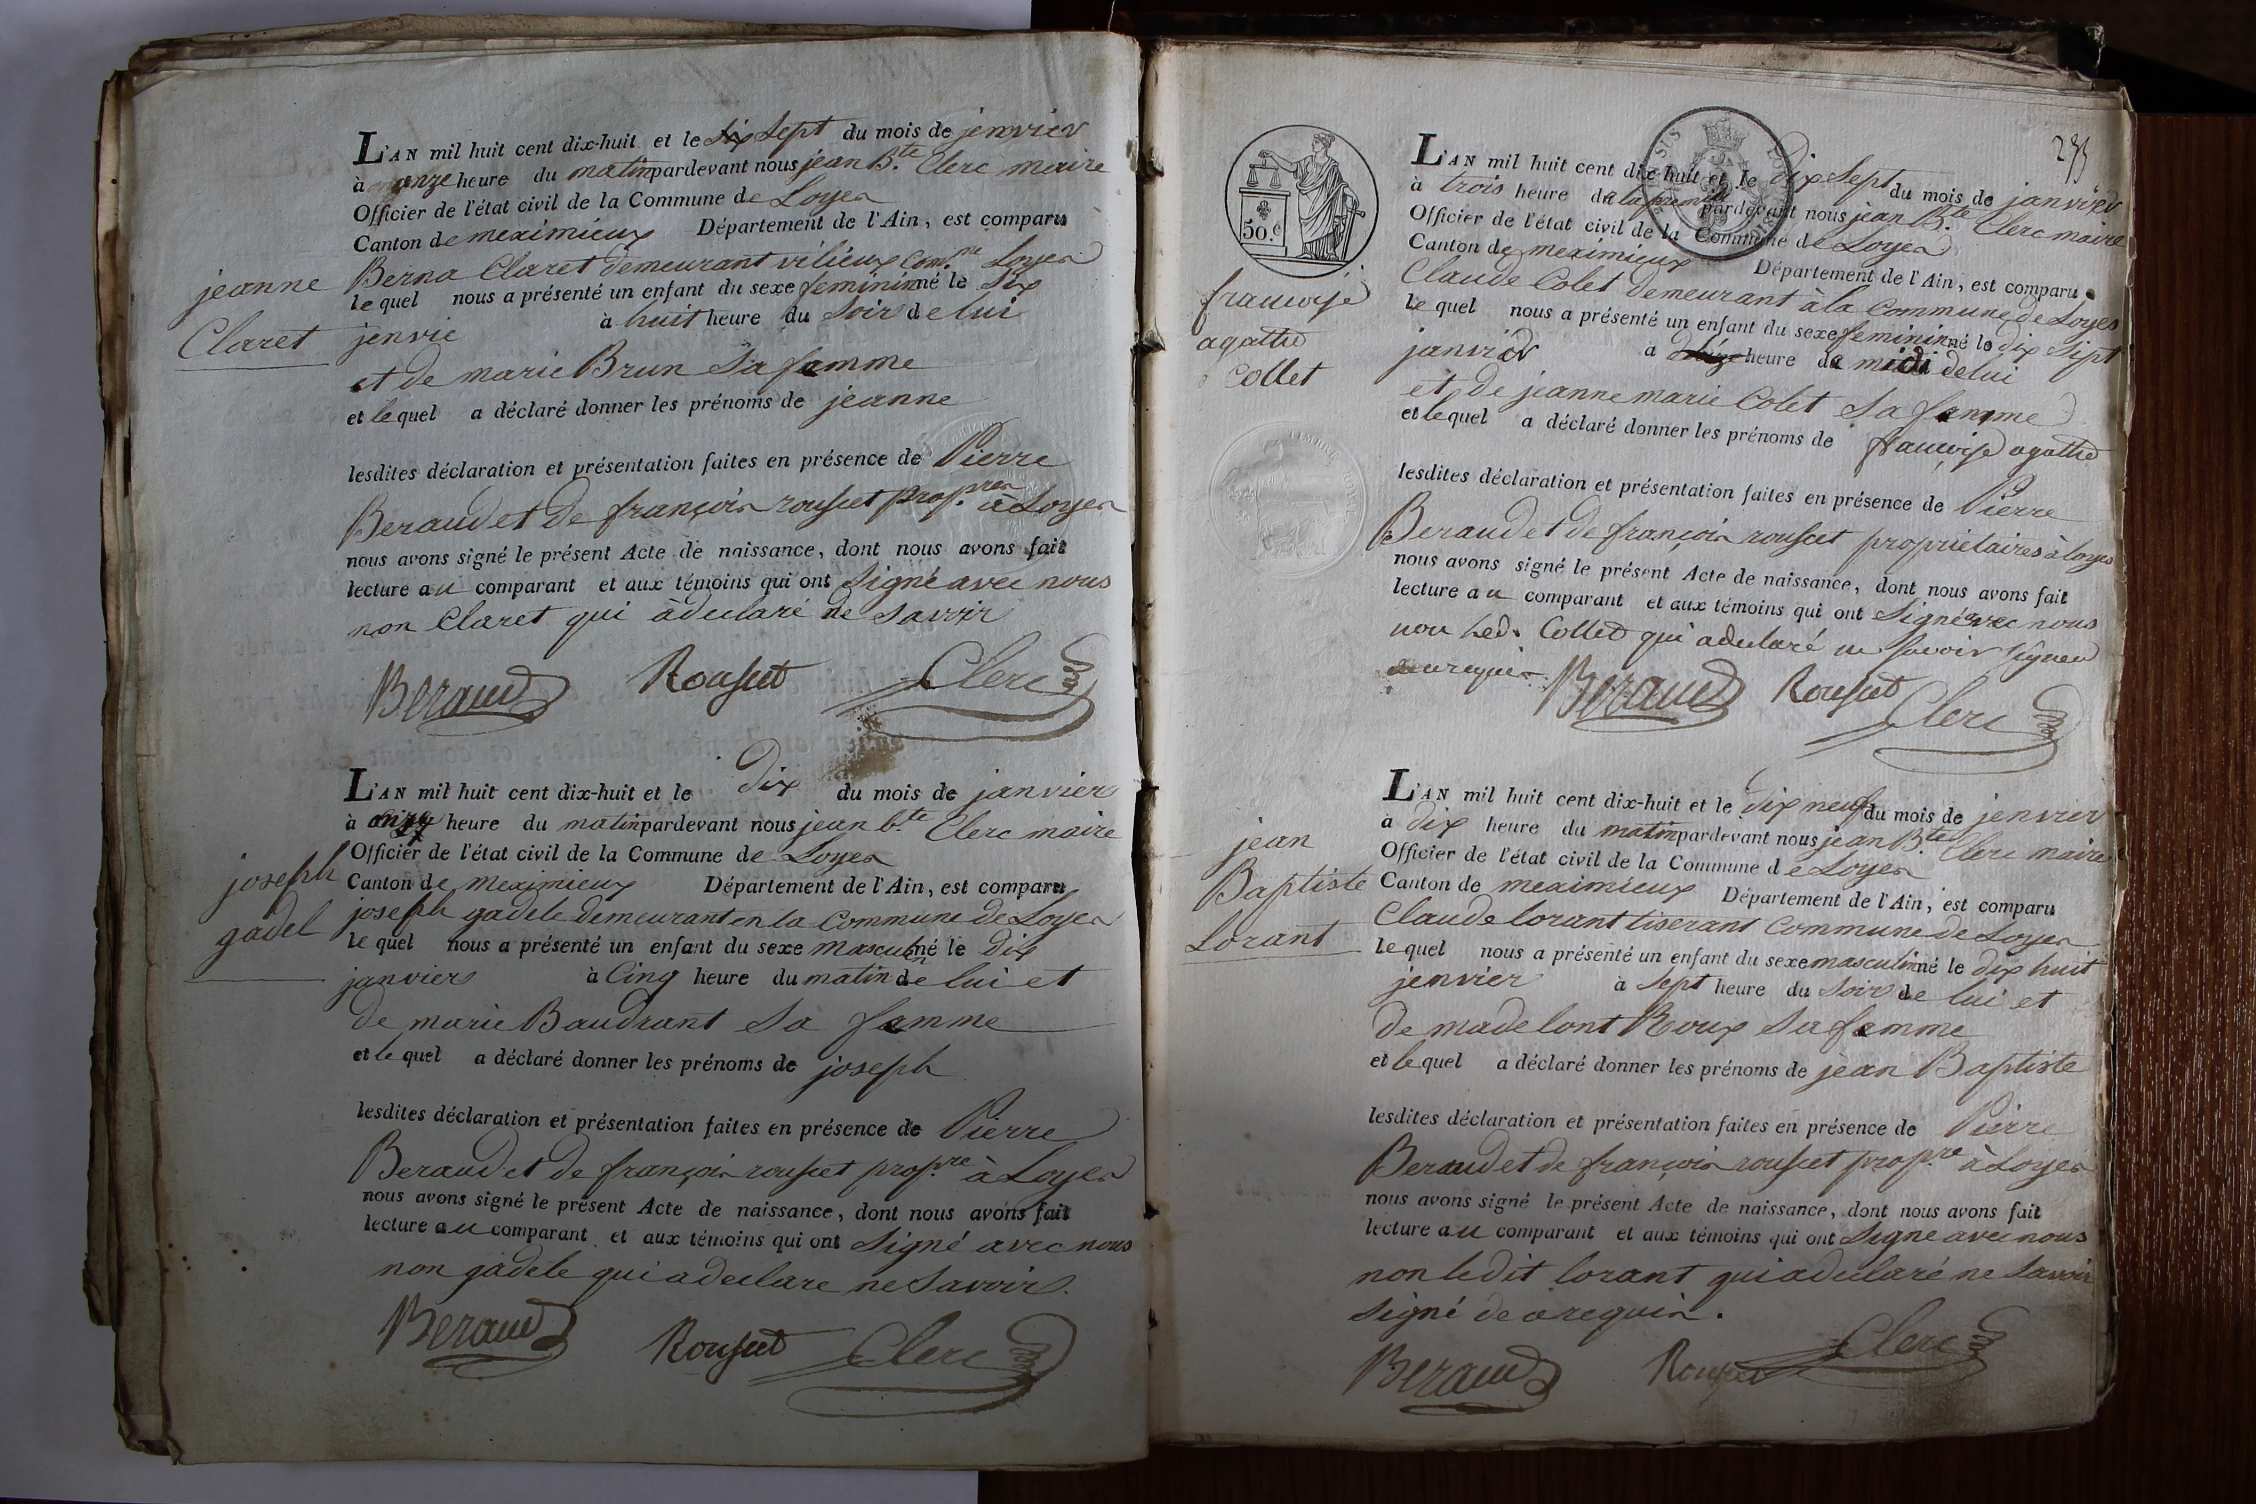 L'AN mil huit cent dix-huit et le sept du mois de jenvier
à onze heure du matin pardevant nous jean B.te Clerc maire
Officier de l'état civil de la Commune de Loyes
Canton de meximieux Département de l'Ain, est comparu
Berna Claret demeurant vilieux com.ne Loyes
le quel nous a présenté un enfant du sexe feminin né le six
jenvie à huit heure du soir de lui
et de marie Brun sa famme
et le quel a déclaré donner les prénoms de jeanne
jeanne
Claret
lesdites déclaration et présentation faites en présence de Pierre
Beraud et de françois rouset prop.res à Loyes
nous avons signé le présent Acte de naissance, dont nous avons fait
lecture au comparant et aux témoins qui ont signé avec nous
non Claret qui à declaré ne savoir
Beraud Rouset Clerc
L'AN mil huit cent dix-huit et le dix du mois de janvier
à heure du matin pardevant nous jean b.te Clerc maire
Officier de l'état civil de la Commune de Loyes
Canton de meximieux Département de l'Ain, est comparu
joseph gadele demeurant en la Commune de Loyes
le quel nous a présenté un enfant du sexe masculin né le dix
janvier à Cinq heure du matin de lui et
de marie Baudrant sa famme
et le quel a déclaré donner les prénoms de joseph
joseph
gadel
lesdites déclaration et présentation faites en présence de Pierre
Beraud et de françois rouset prop.re à Loyes
nous avons signé le présent Acte de naissance, dont nous avons fait
lecture au comparant et aux témoins qui ont signé avec nous
non gadele qui a declare ne savoir.
Beraud Rouset Clerc
50.c
L'AN mil huit cent dix-huit et le dix sept du mois de janvier
à trois heure du pardevant nous jean B.te Clerc maire
Officier de l'état civil de la Commune de Loyes
Canton de meximieux Département de l'Ain, est comparu
Claude Colet demeurant à la Commune de Loyes
le quel nous a présenté un enfant du sexe feminin né le dix sept
janvier à heure de midi de lui
et de jeanne marie Colet sa famme
et le quel a déclaré donner les prénoms de françoise agathe
françoise
agathe
Collet
lesdites déclaration et présentation faites en présence de Pierre
Beraud et de françois rouset proprietaires à loyes
nous avons signé le présent Acte de naissance, dont nous avons fait
lecture au comparant et aux témoins qui ont signé avec nous
non led. Collet qui a declaré ne savoir signer
Beraud Rouset Clerc
L'AN mil huit cent dix-huit et le dix neuf du mois de jenvier
à dix heure du matin pardevant nous jean B.te Clerc maire
Officier de l'état civil de la Commune de Loyes
Canton de meximieux Département de l'Ain, est comparu
Claude lorant tiserant Commune de Loyes
le quel nous a présenté un enfant du sexe masculin né le dix huit
jenvier à sept heure du soir de lui et
de madelont Roux sa famme
et le quel a déclaré donner les prénoms de jean Baptiste
jean
Baptiste
Lorant
lesdites déclaration et présentation faites en présence de Pierre
Beraud et de françois rouset prop.re à Loyes
nous avons signé le présent Acte de naissance, dont nous avons fait
lecture au comparant et aux témoins qui ont signe avec nous
non ledit lorant qui a declaré ne savoir
signé de ce requis.
Beraud Rouset Clerc